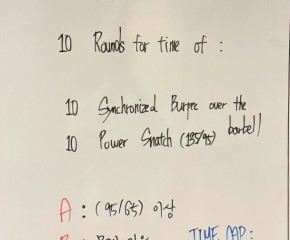 10 Rounds for time of :
10 Synchronized Burpee over the barbell
10 Power Snatch (135/95)
A : (95/65) 이상
TIME CAP :